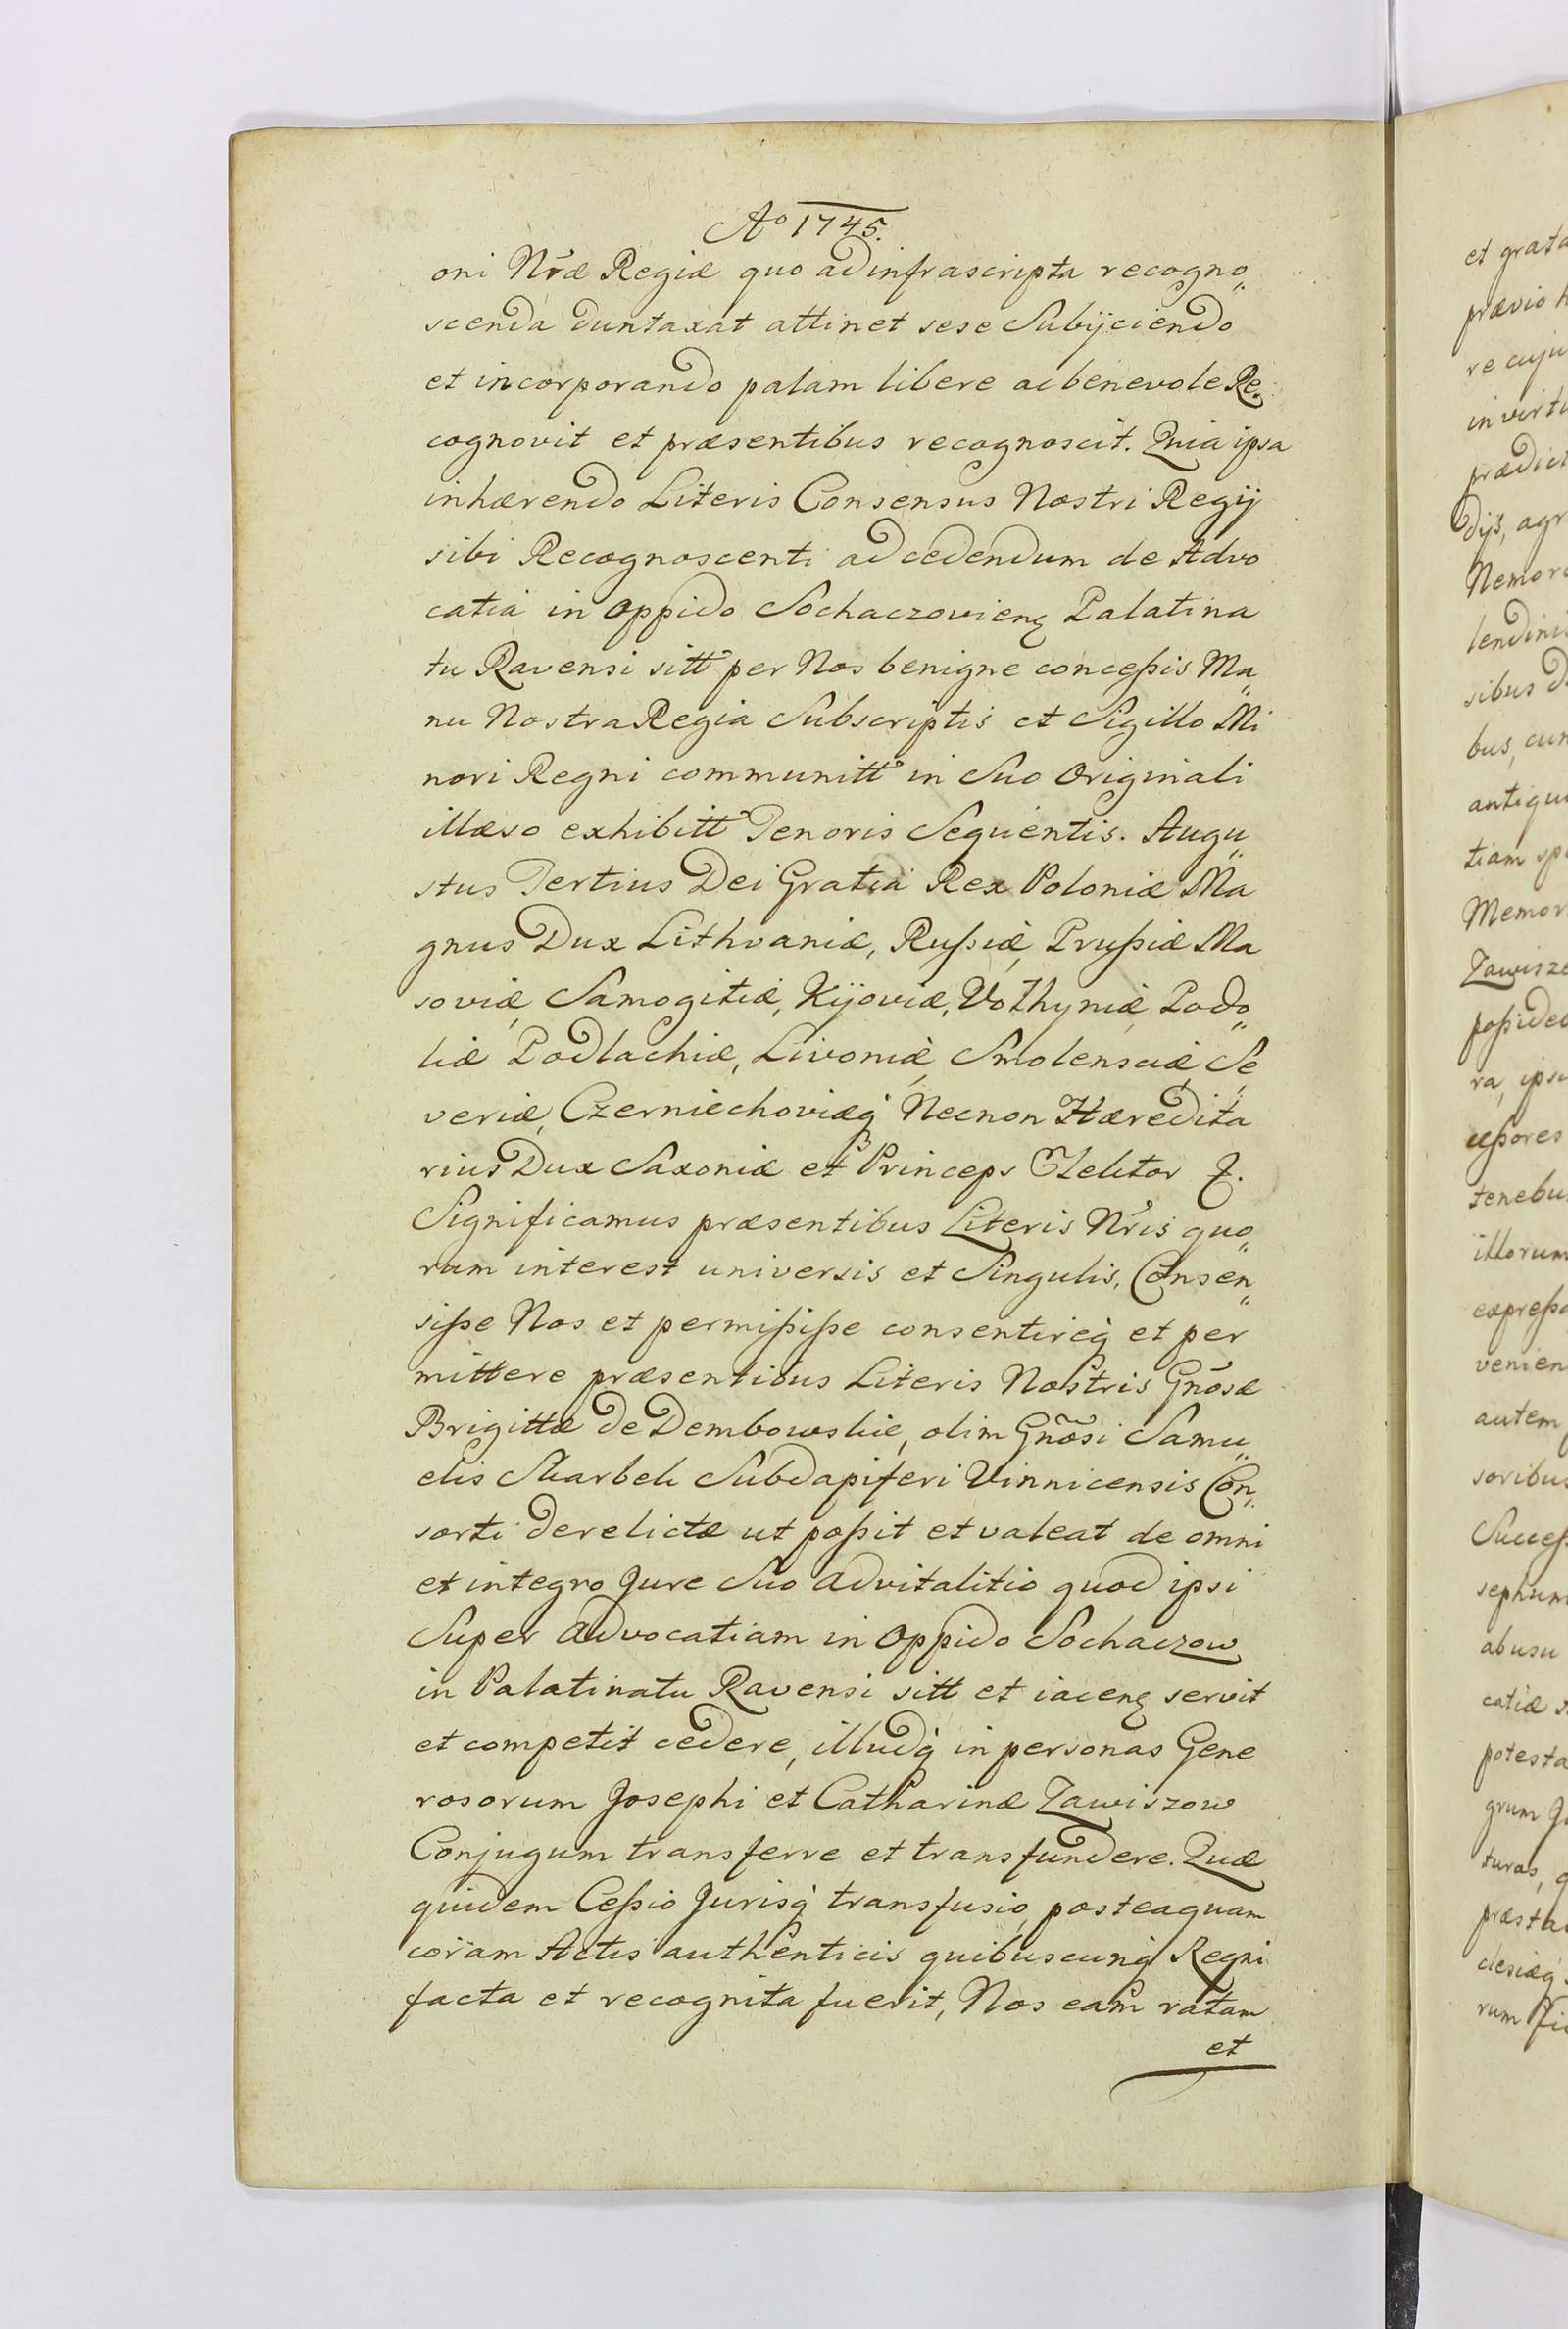 Ao 1745.
oni Nræ Regiæ quo ad infrascripta recogno„
scenda duntaxat attinet sese Subijciendo
et incorporando palam libere ac benevole Re„
cognovit et præsentibus recognoscit. Quia ipsa
inhærendo Literis Consensus Nostri Regij
sibi Recognoscenti ad cedendum de Advo
catia in oppido Sochaczovien Palatina
tu Ravensi sitt per Nos benigne conceßis Ma„
nu Nostra Regia Subscriptis et Sigillo Mi
nori Regni communitt in Suo Originali
illæso exhibitt Tenoris Sequentis. Augu„
stus Tertius Dei Gratia Rex Poloniæ Ma
gnus Dux Lithvaniæ, Rußiæ, Prußiæ Ma
soviæ, Samogitiæ, Kijoviæ, Volhyniæ, Podo„
liæ Podlachiæ, Livoniæ, Smolensciæ, Se„
veriæ, Czerniechoviæq Necnon Hæredita
rius Dux Saxoniæ et Princeps Elector &.
Significamus præsentibus Literis Nris quo„
rum interest universis et Singulis, Consen„
siße Nos et permißiße consentireq et per
mittere præsentibus Literis Nostris Gnosæ
Brigittæ de Dembowskie, olim Gnosi Samu„
elis Skarbek Subdapiferi Vinnicensis Con„
sorti derelictæ ut poßit et valeat de omni
et integro Jure Suo advitalitio quod ipsi
Super advocatiam in oppido Sochaczow
in Palatinatu Ravensi sitt et iacen servit
et competit cedere, illudq in personas Gene
rosorum Josephi et Catharinæ Zawiszow
Conjugum transferre et transfundere. Quæ
quidem Ceßio Jurisq transfusio, posteaquam
coram Actis authenticis quibuscunq Regni
facta et recognita fuerit, Nos eam ratam
et
et grata
prævio
re cuju
in virtu
prædict
dijs, agr
Nemor
lendini
sibus
bus, cum
antiqui
tiam spe
Memor
Zawisze
poßidea
ra, ipsi
ceßores
tenebu
illorum
expreßa
venien
autem
soribus
Succeß
sephum
abusu
catiæ
potesta
grum
turas,
præsta
clesiæq
rum